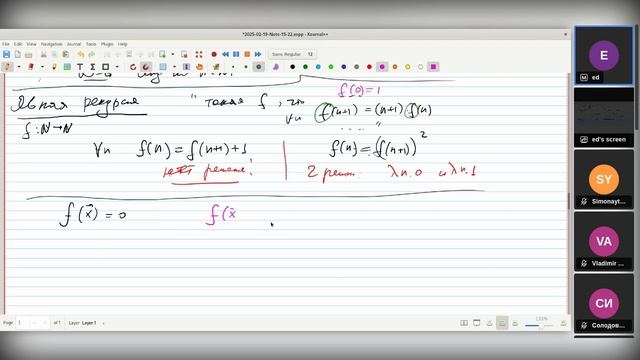 *2025-02-19-Note-15-22.xopp - Xournal++
File Edit View Navigation Journal Tools Plugin Help
Sans Regular 12
Явная рекурсия
"такая f, что
f(0)=1
∀n f(n+1) = (n+1)·f(n)
.....
f: N→N
∀n f(n) = f(n+1)+1
нет решений!
f(n) = (f(n+1))²
2 реш. λn.0 и λn.1
f(x⃗) = 0
f(x⃗
Page 1 of 1 Layer Layer 1
E
ed
ed's screen
SY
Simonayt...
VA
Vladimir ...
СИ
Солодов...